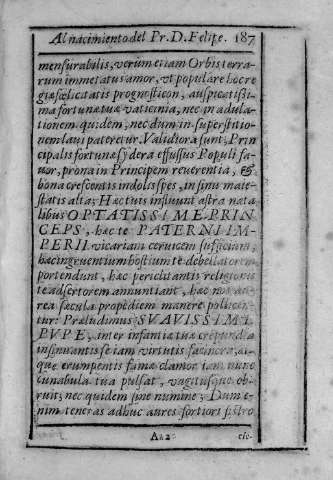 Al nacimiento del Pr. D. Felipe. 187
mensurabilis, verum etiam Orbis terra-
rum immetatus amor, vt populare hoc re
giæ fœlicitatis prognosticon, auspicatißi-
ma fortunæ tuæ vaticinia, nec in adula-
tionem quidem, nec dum in superstitio-
nem laui pateretur. Validiora sunt, Prin
cipalis fortunæ sydera effussus Populi fa-
uor, prona in Principem reuerentia, &
bona crescentis indolis spes, in sinu maie-
statis alta; Hac tuis influunt astra nata
libus OPTATISSIME PRIN
CEPS, hac te PATERNI IM-
PERII vicariam ceruicem suffectum,
hac ingruentium hostium te debellatorem
portendunt, hac periclitantis religionis
te adsertorem annuntiant, hac
rea sæcula propediem manere pollicen-
tur: Præludimus SVAVISSIME
PVPE, inter infantiæ tuæ crepundia
insinuantis se iam virtutis facinora, at-
que erumpentis famæ clamor iam nunc
cunabula tua pulsat, vagitusque ob-
ruit; nec quidem sine numine; Dum e-
nim teneras adhuc aures fortiori sistro
Aa2 cie-